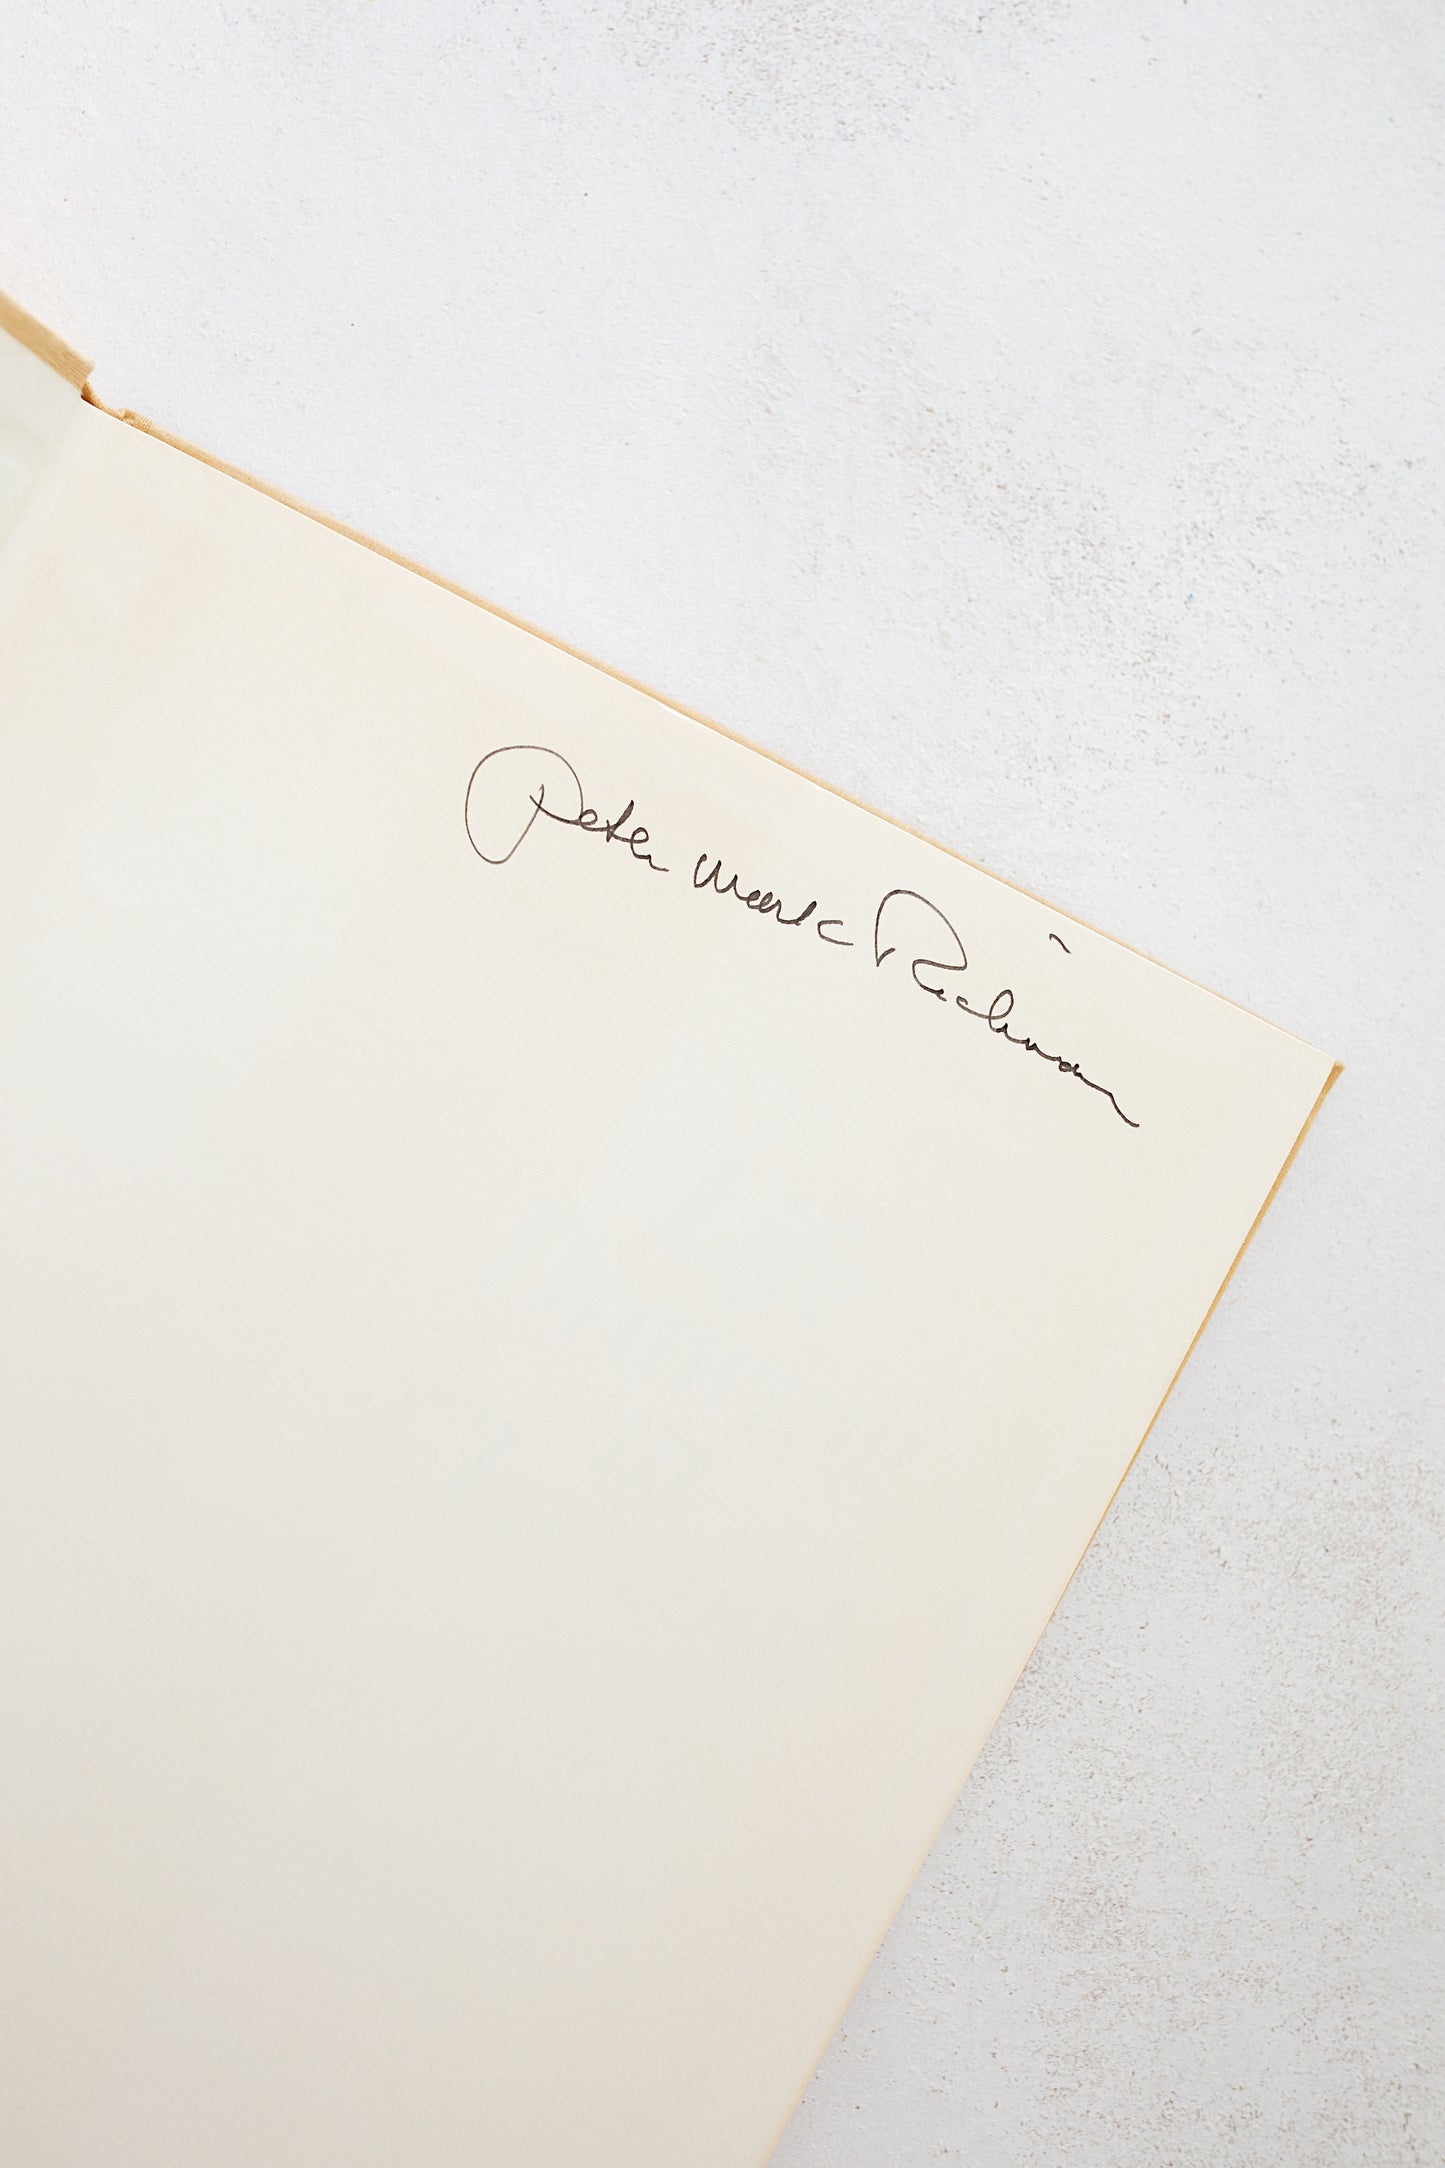 Peter Mark Richman